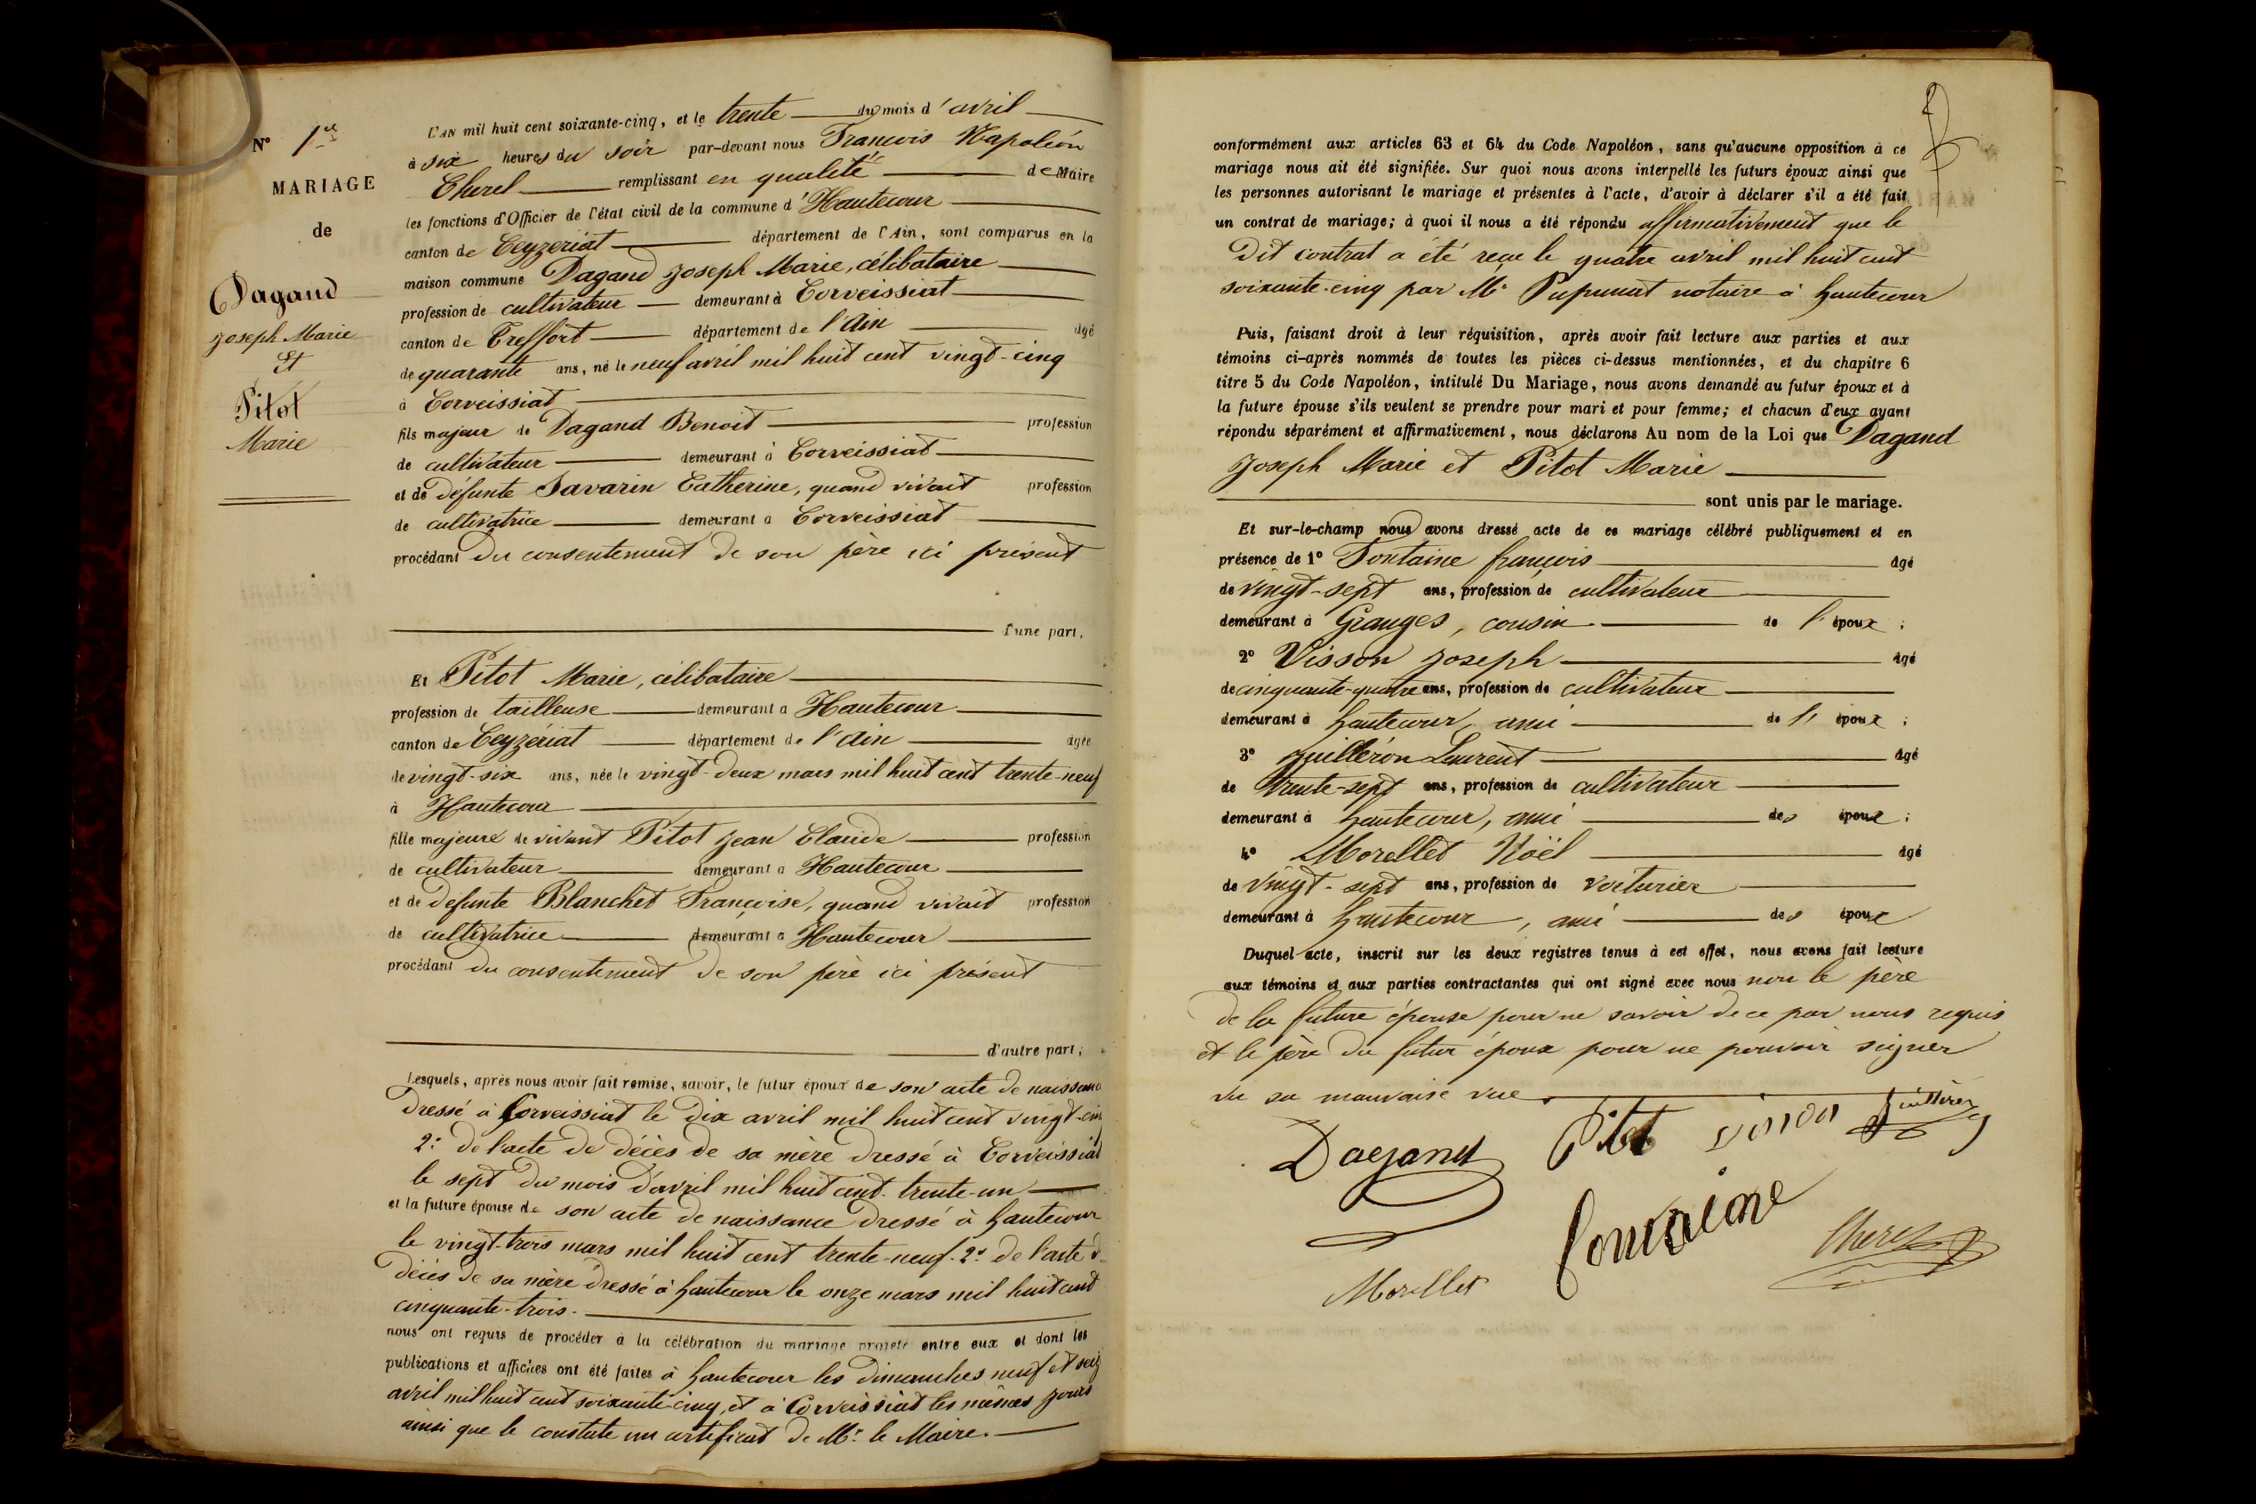 N° 1er
MARIAGE
de
Dagand
Joseph Marie
Et
Pitot
Marie
L'AN mil huit cent soixante-cinq, et le trente du mois d'avril
à six heures du soir par-devant nous François Napoléon
Cherel remplissant en qualité de Maire
les fonctions d'Officier de l'état civil de la commune d'Hautecour
canton de Ceyzeriat département de l'Ain, sont comparus en la
maison commune Dagand Joseph Marie, célibataire
profession de cultivateur demeurant à Corveissiat
canton de Treffort département de l'Ain âgé
de quarante ans, né le neuf avril mil huit cent vingt-cinq
à Corveissiat
fils majeur de Dagand Benoit profession
de cultivateur demeurant à Corveissiat
et de défunte Savarin Catherine, quand vivait profession
de cultivatrice demeurant à Corveissiat
procédant du consentement de son père ici présent
d'une part,
Et Pitot Marie, célibataire
profession de tailleuse demeurant à Hautecour
canton de Ceyzériat département de l'Ain âgée
de vingt-six ans, née le vingt-deux mars mil huit cent trente-neuf
à Hautecour
fille majeure de vivant Pitot Jean Claude profession
de cultivateur demeurant à Hautecour
et de defunte Blanchet Françoise, quand vivait profession
de cultivatrice demeurant à Hautecour
procédant du consentement de son père ici présent
d'autre part;
Lesquels, après nous avoir fait remise, savoir, le futur époux de son acte de naissance
dressé à Corveissiat le dix avril mil huit cent vingt-cinq
2° de l'acte de décès de sa mère dressé à Corveissiat
le sept du mois d'avril mil huit cent trente-un
et la future épouse de son acte de naissance dressé à hautecour
le vingt-trois mars mil huit cent trente-neuf. 2° de l'acte d
décès de sa mère dressé à hautecour le onze mars mil huit cent
cinquante-trois.
nous ont requis de procéder à la célébration du mariage projeté entre eux et dont les
publications et affiches ont été faites à hautecour les dimanches neuf et seiz
avril mil huit cent soixante-cinq, et à Corveissiat les mêmes jours
ainsi que le constate un certificat de Mr le Maire.
conformément aux articles 63 et 64 du Code Napoléon, sans qu'aucune opposition à ce
mariage nous ait été signifiée. Sur quoi nous avons interpellé les futurs époux ainsi que
les personnes autorisant le mariage et présentes à l'acte, d'avoir à déclarer s'il a été fait
un contrat de mariage; à quoi il nous a été répondu affirmativement que le
dit contrat a été reçu le quatre avril mil huit cent
soixante-cinq par Me Pupunat notaire à hautecour
Puis, faisant droit à leur réquisition, après avoir fait lecture aux parties et aux
témoins ci-après nommés de toutes les pièces ci-dessus mentionnées, et du chapitre 6
titre 5 du Code Napoléon, intitulé Du Mariage, nous avons demandé au futur époux et à
la future épouse s'ils veulent se prendre pour mari et pour femme; et chacun d'eux ayant
répondu séparément et affirmativement, nous déclarons Au nom de la Loi que Dagand
Joseph Marie et Pitot Marie
sont unis par le mariage.
Et sur-le-champ nous avons dressé acte de ce mariage célébré publiquement et en
présence de 1° Fontaine françois âgé
de vingt-sept ans, profession de cultivateur
demeurant à Granges, cousin de l'époux;
2° Visson Joseph âgé
de cinquante-quatre ans, profession de cultivateur
demeurant à hautecour, ami de l'époux;
3° Juilléron Laurent âgé
de trente-sept ans, profession de cultivateur
demeurant à hautecour, ami des époux;
4° Morellet Noël âgé
de vingt-sept ans, profession de voiturier
demeurant à hautecour, ami des époux
Duquel acte, inscrit sur les deux registres tenus à cet effet, nous avons fait lecture
aux témoins et aux parties contractantes qui ont signé avec nous non le père
de la future épouse pour ne savoir de ce par nous requis
et le père du futur époux pour ne pouvoir signer
vu sa mauvaise vue.
Dagand Pitot visson Juilléron
fontaine
Morellet Cherel